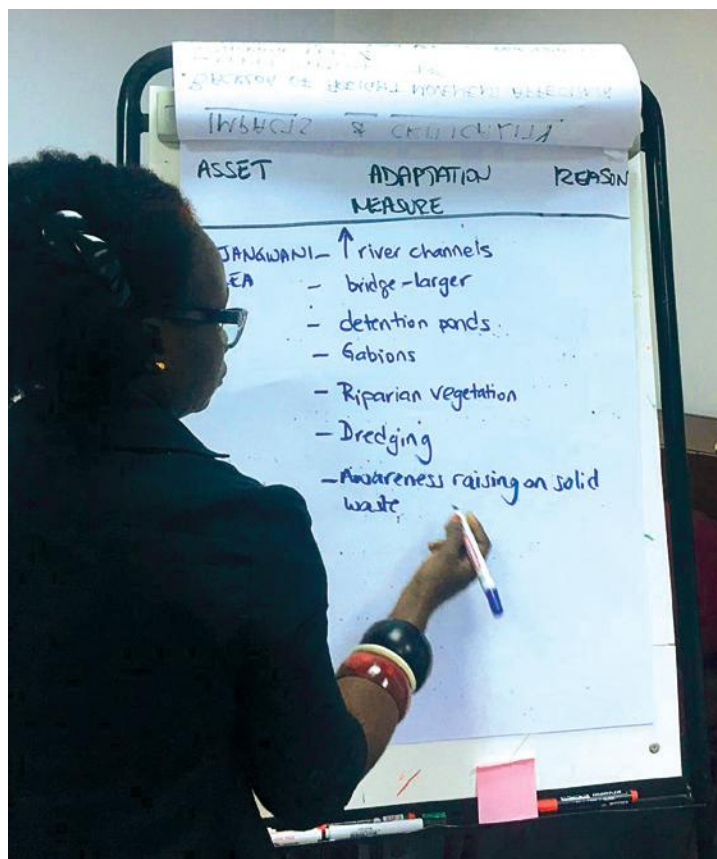 IMPACTS & CRITICALITY
ASSET ADAPTATION REASON
MEASURE
JANGWANI – ↑ river channels
EA – bridge – larger
– detention ponds.
– Gabions
– Riparian vegetation
– Dredging
– Awareness raising on solid
waste